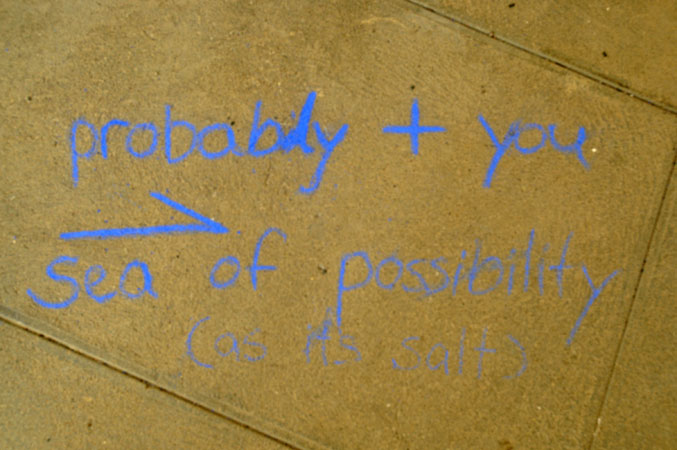 probably + you
⇀
sea of possibility
(as it's salt)